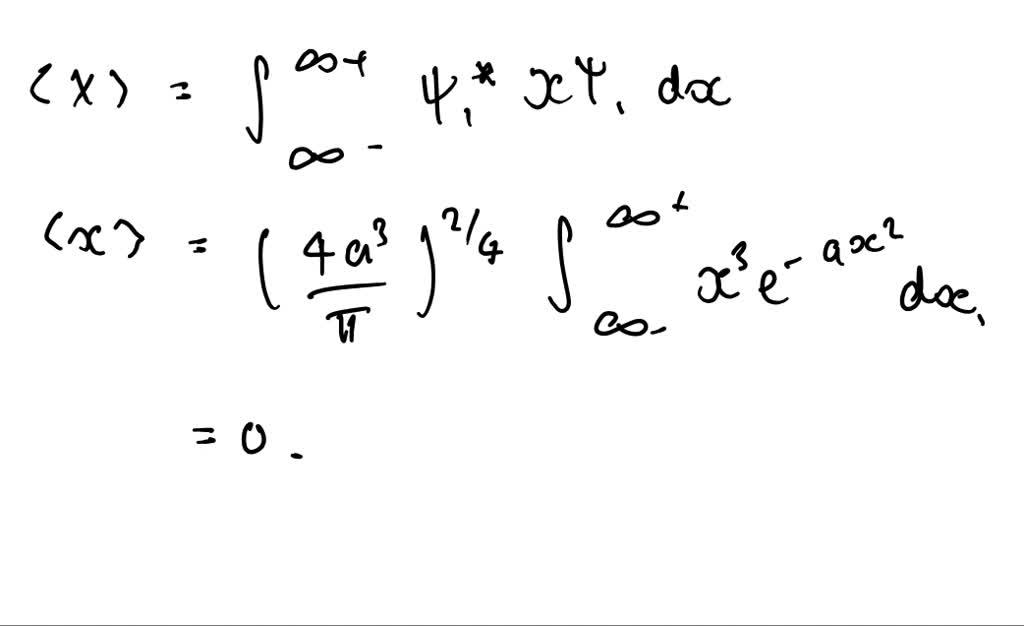 ⟨x⟩ = ∫_{∞-}^{∞+} ψ₁* x ψ₁ dx
⟨x⟩ = (4a³/π)^{2/4} ∫_{∞-}^{∞+} x³ e^{-ax²} dx,
= 0.